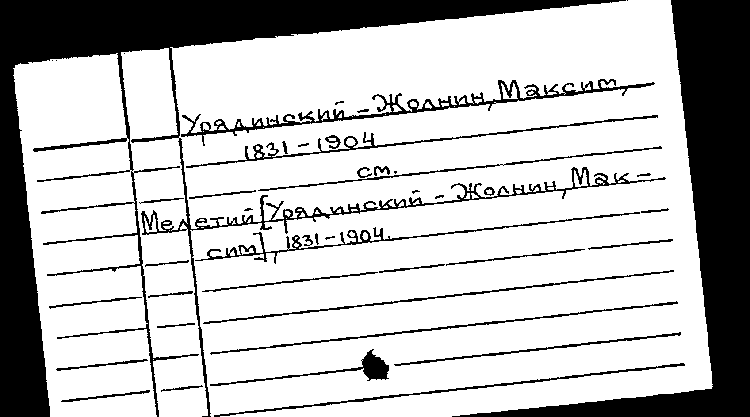 Урядинский - Жолнин, Максим,
1831 - 1904
см.
Мелетий [Урядинский - Жолнин, Мак -
сим], 1831-1904.